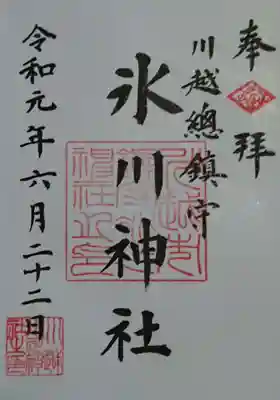 奉拜
川越總鎮守
氷川神社
令和元年六月二十二日